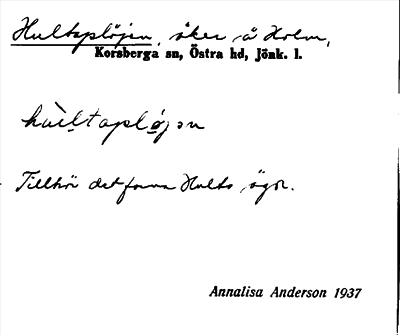 Hultaplöjen, åker å Holm,
Korsberga sn, Östra hd, Jönk. l.
hùltaplö́jən
Tillhör det forna Hults ägor.
Annalisa Anderson 1937